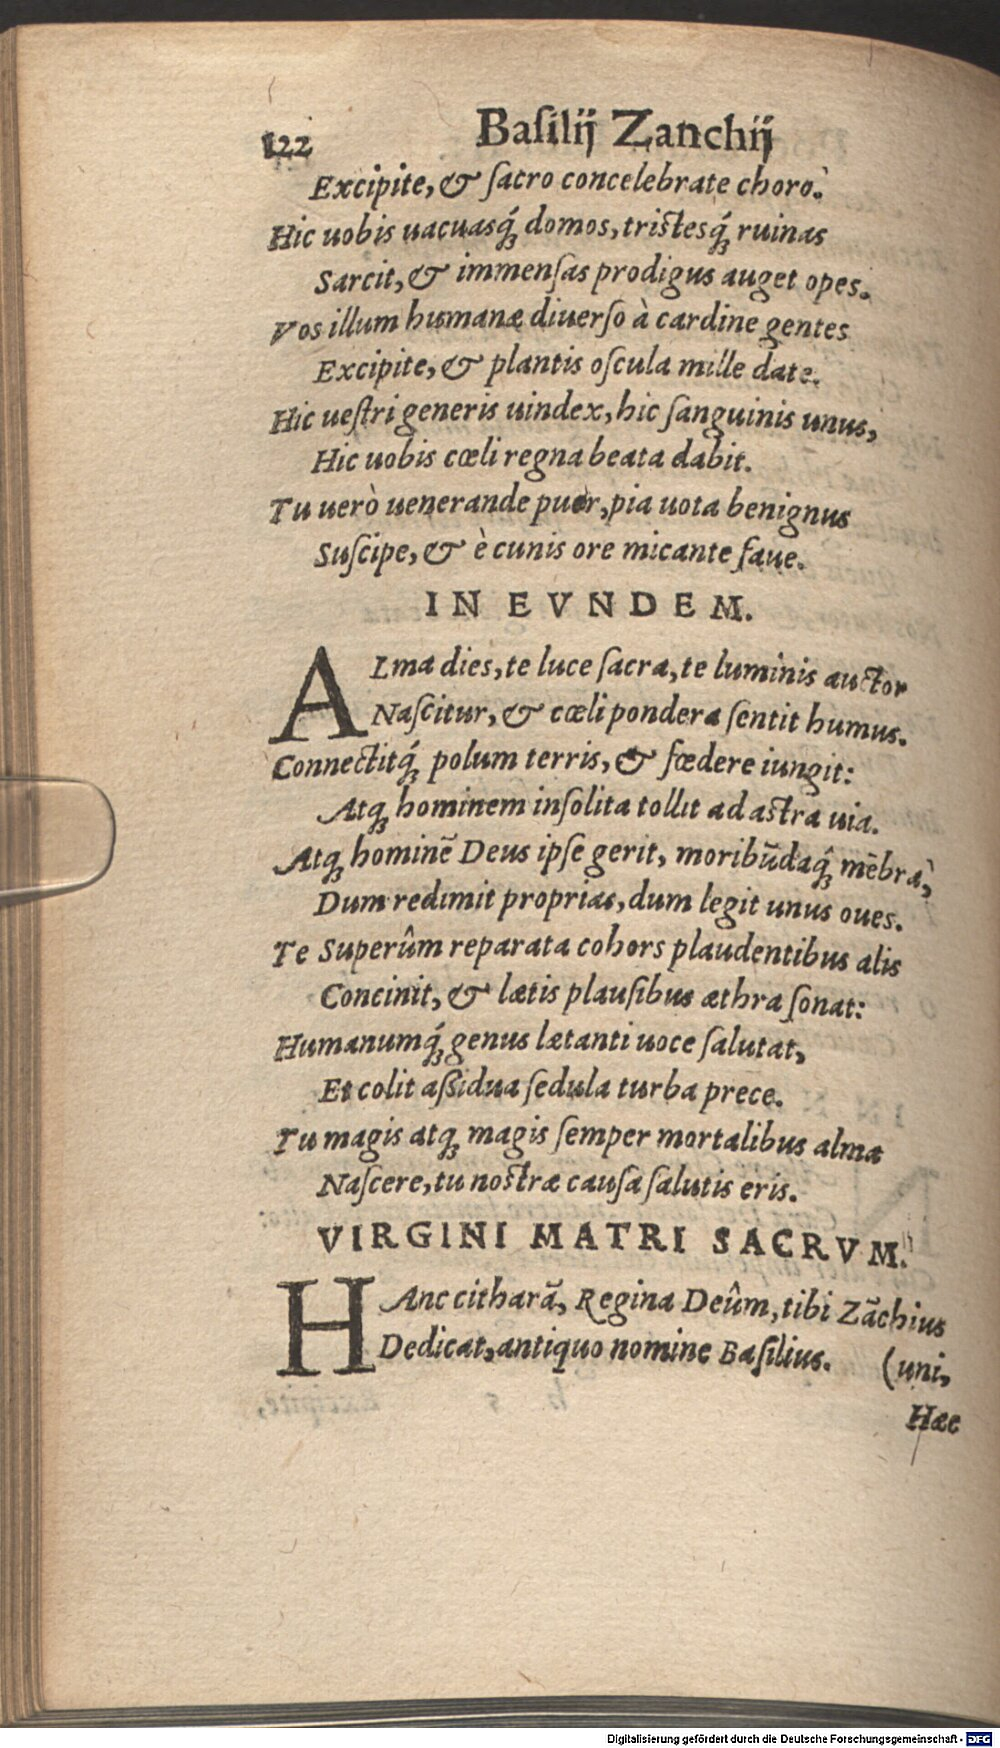 122 Baſilij Zanchij
Excipite, & ſacro concelebrate choro.
Hic uobis uacuasq́; domos, tristesq́; ruinas
Sarcit, & immenſas prodigus auget opes.
Vos illum humanæ diuerſo à cardine gentes
Excipite, & plantis oſcula mille date.
Hic ueſtri generis uindex, hic ſanguinis unus,
Hic uobis cœli regna beata dabit.
Tu uerò uenerande puer, pia uota benignus
Suſcipe, & è cunis ore micante faue.
IN EVNDEM.
ALma dies, te luce ſacra, te luminis auctor
Naſcitur, & cœli pondera ſentit humus.
Connectitq́; polum terris, & fœdere iungit:
Atq; hominem inſolita tollit ad astra uia.
Atq; hominē Deus ipſe gerit, moribūdaq́; mēbra,
Dum redimit proprias, dum legit unus oues.
Te Superûm reparata cohors plaudentibus alis
Concinit, & lætis plauſibus æthra ſonat:
Humanumq́; genus lætanti uoce ſalutat,
Et colit aßidua ſedula turba prece.
Tu magis atq; magis ſemper mortalibus alma
Naſcere, tu nostræ cauſa ſalutis eris.
VIRGINI MATRI SACRVM.
HAnc citharā, Regina Deûm, tibi Zāchius
Dedicat, antiquo nomine Baſilius. (uni,
Hæc
Digitalisierung gefördert durch die Deutsche Forschungsgemeinschaft - DFG